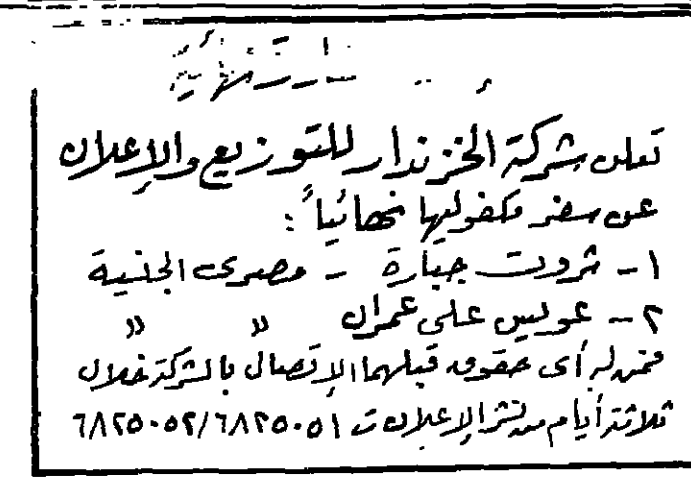 تعلن شركة الخزندار للتوزيع والإعلان
عن سفر مكفوليها نهائياً:
١- ثروت جبارة - مصرى الجنسية
٢- عويس على عمران » »
فمن له أى حقوق قبلهما الإتصال بالشركة خلال
ثلاثة أيام من نشر الإعلان ت ٦٨٢٥٠٥١/٦٨٢٥٠٥٢